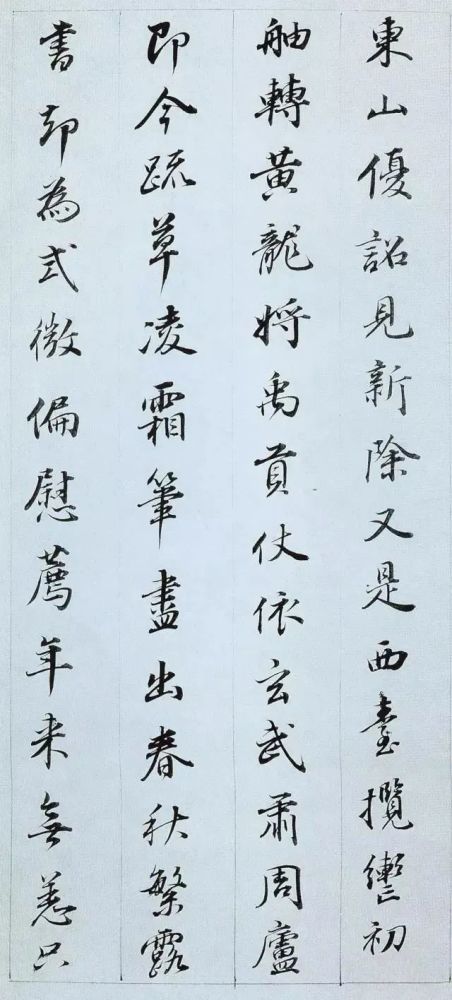 東山優詔見新除又是西臺攬轡初
舳轉黃龍將禹貢仗依玄武肅周廬
即今疏草凌霜筆盡出春秋繁露
書却為式微偏慰薦年來無恙只